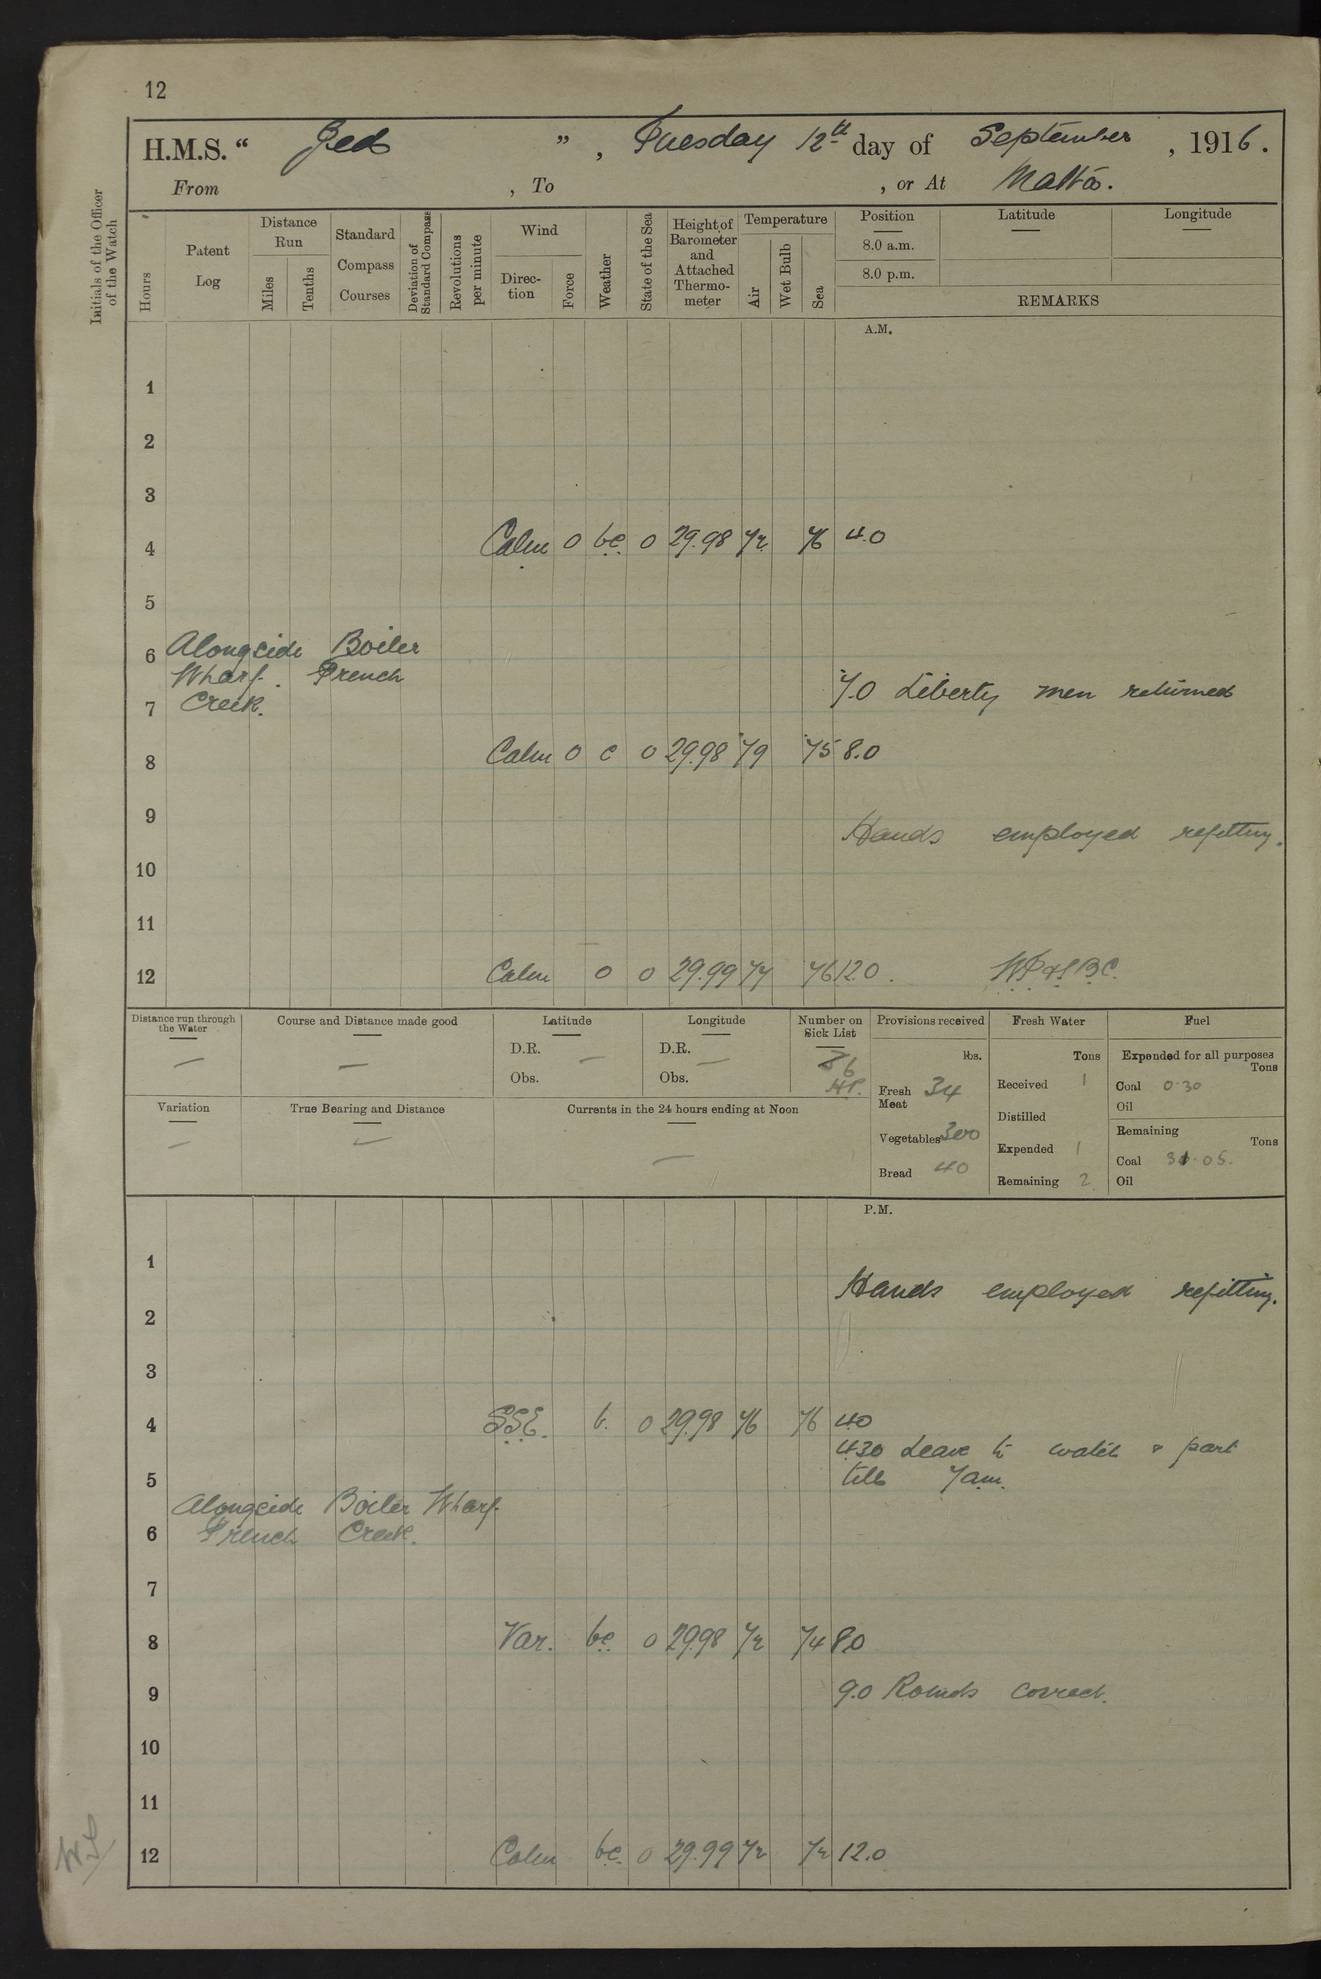 12
H.M.S. " Jed " , Tuesday 12th day of September , 1916.
From , To , or At Malta.
Initials of the Officer of the Watch
Hours
Patent Log
Distance Run
Miles
Tenths
Standard Compass Courses
Deviation of Standard Compass
Revolutions per minute
Wind
Direction
Force
Weather
State of the Sea
Height of Barometer and Attached Thermometer
Temperature
Air
Wet Bulb
Sea
Position Latitude Longitude
8.0 a.m.
8.0 p.m.
REMARKS
A.M.
1
2
3
4 Calm 0 bc. 0 29.98 72 76 4.0
5
6 Alongside Boiler
Wharf. French
7 Creek. 7.0 Liberty men returned
8 Calm 0 c 0 29.98 79 75 8.0
9 Hands employed refitting.
10
11
12 Calm o 0 29.99 77 76 12.0
Distance run through the Water
Course and Distance made good
Latitude
D.R. —
Obs.
Longitude
D.R. —
Obs.
Number on Sick List
6
Variation
True Bearing and Distance
Currents in the 24 hours ending at Noon
Provisions received
lbs.
Fresh Meat 34
Vegetables 300
Bread 40
Fresh Water
Tons
Received 1
Distilled
Expended 1
Remaining 2
Fuel
Expended for all purposes
Tons
Coal 0.30
Oil
Remaining
Tons
Coal 31.05.
Oil
P.M.
1
Hands employed refitting.
2
3
4 S.S.E. b. 0 29.98 76 76 4.0
4.30 Leave to watch & part
5 till 7am.
Alongside Boiler Wharf.
6 French Creek.
7
8 Var. bc. 0 29.98 72 74 8.0
9 9.0 Rounds correct.
10
11
12 Calm bc. 0 29.99 72 72 12.0